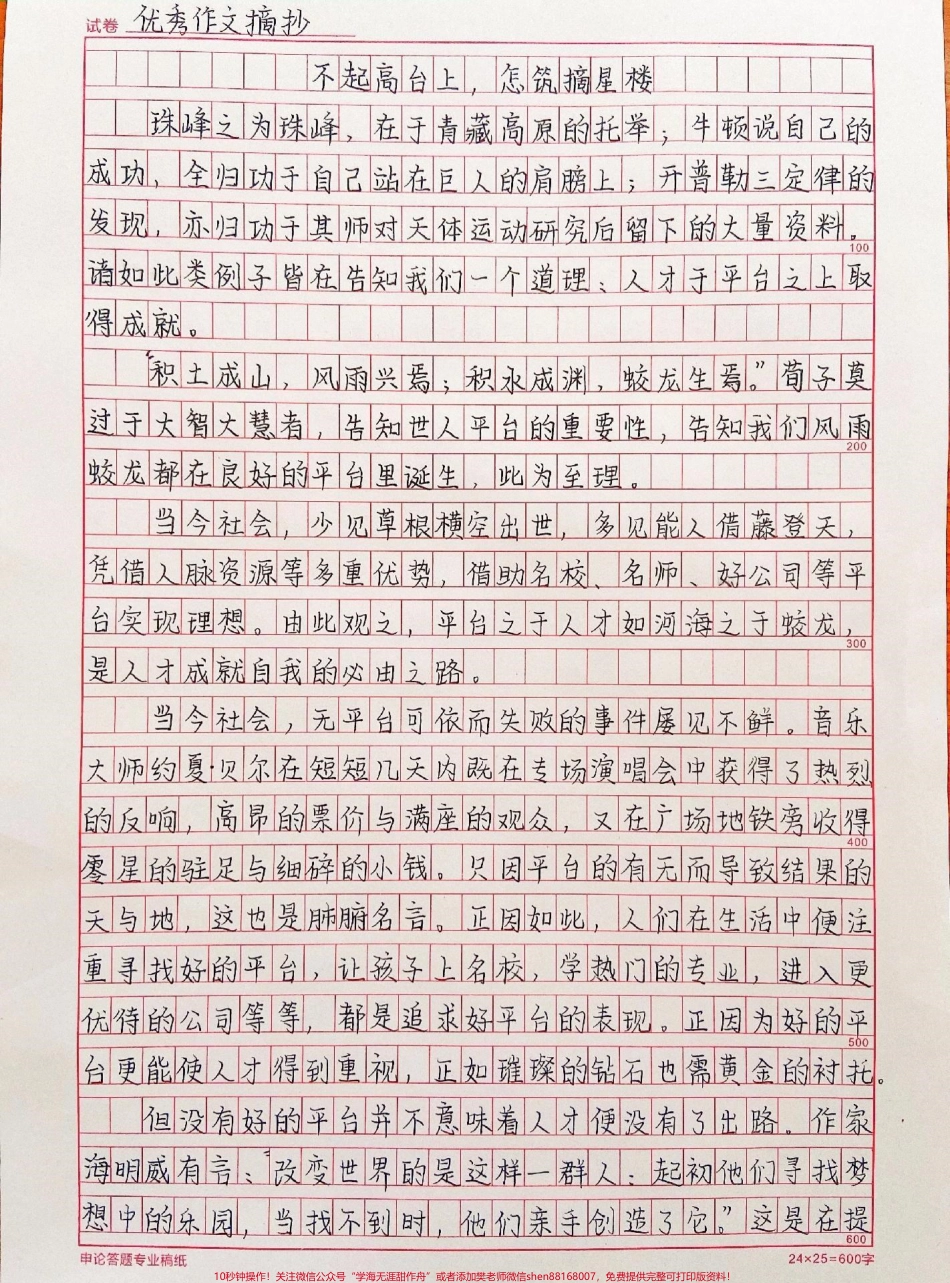 试卷 优秀作文摘抄
不起高台上，怎筑摘星楼
珠峰之为珠峰，在于青藏高原的托举；牛顿说自己的
成功，全归功于自己站在巨人的肩膀上；开普勒三定律的
发现，亦归功于其师对天体运动研究后留下的大量资料。
100
诸如此类例子皆在告知我们一个道理：人才于平台之上取
得成就。
“积土成山，风雨兴焉；积水成渊，蛟龙生焉。”荀子莫
过于大智大慧者，告知世人平台的重要性，告知我们风雨
200
蛟龙都在良好的平台里诞生，此为至理。
当今社会，少见草根横空出世，多见能人借藤登天，
凭借人脉资源等多重优势，借助名校、名师、好公司等平
台实现理想。由此观之，平台之于人才如河海之于蛟龙，
300
是人才成就自我的必由之路。
当今社会，无平台可依而失败的事件屡见不鲜。音乐
大师约夏·贝尔在短短几天内既在专场演唱会中获得了热烈
的反响，高昂的票价与满座的观众，又在广场地铁旁收得
400
零星的驻足与细碎的小钱。只因平台的有无而导致结果的
天与地，这也是肺腑名言。正因如此，人们在生活中便注
重寻找好的平台，让孩子上名校，学热门的专业，进入更
优待的公司等等，都是追求好平台的表现。正因为好的平
500
台更能使人才得到重视，正如璀璨的钻石也需黄金的衬托。
但没有好的平台并不意味着人才便没有了出路。作家
海明威有言：“改变世界的是这样一群人：起初他们寻找梦
想中的乐园，当找不到时，他们亲手创造了它。”这是在提
600
申论答题专业稿纸 24×25=600字
10秒钟操作！关注微信公众号“学海无涯甜作舟”或者添加樊老师微信shen88168007，免费提供完整可打印版资料！